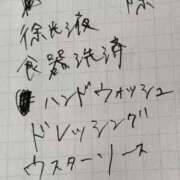 除光液
食器洗済
ハンドウォッシュ
ドレッシング
ウスターソース